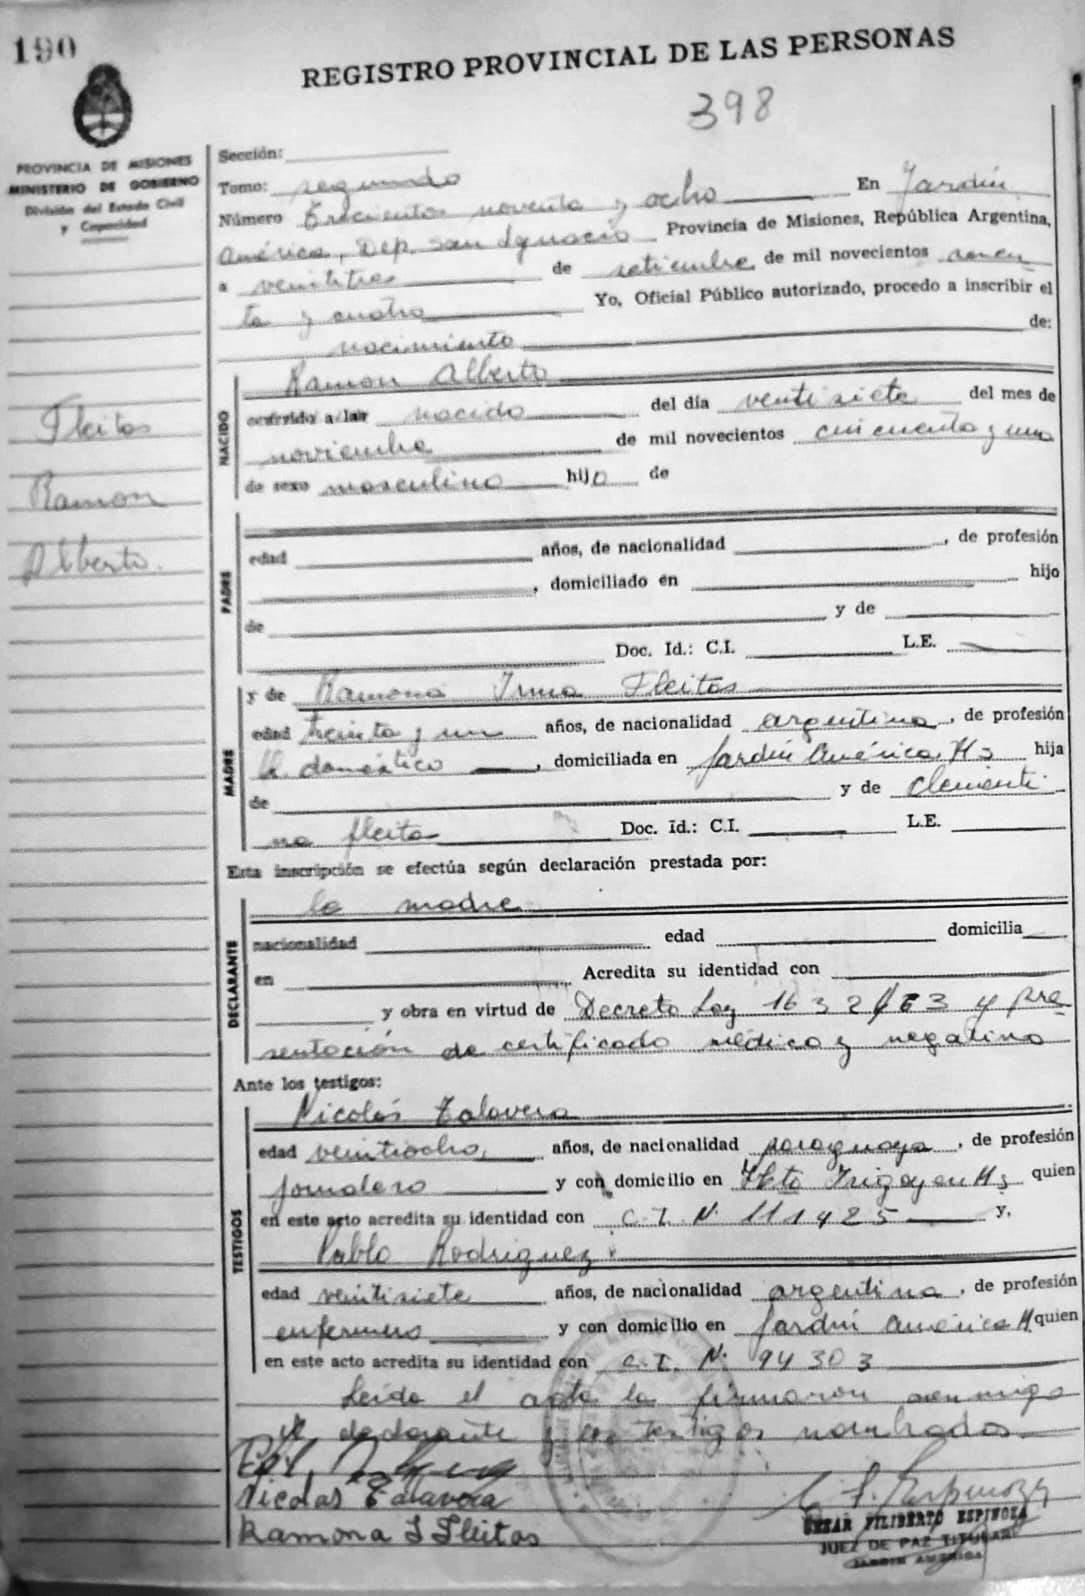 190
REGISTRO PROVINCIAL DE LAS PERSONAS
398
PROVINCIA DE MISIONES
MINISTERIO DE GOBIERNO
División del Estado Civil
y Capacidad
Fleitas
Ramon
Alberto.
Sección:
Tomo: segundo
Número Trecientos noventa y ocho En Jardín
América, Dep. San Ignacio Provincia de Misiones, República Argentina,
a veintitres de setiembre de mil novecientos sesen
ta y cuatro Yo, Oficial Público autorizado, procedo a inscribir el
nacimiento de:
NACIDO
Ramon Alberto
ocurrido a las nacido del día ventisiete del mes de
noviembre de mil novecientos cincuenta y uno
de sexo masculino hijo de
PADRE
edad años, de nacionalidad , de profesión
, domiciliado en hijo
de y de
Doc. Id.: C.I. L.E.
MADRE
y de Ramona Irma Fleitas
edad treinta y un años, de nacionalidad argentina, de profesión
domestico , domiciliada en Jardín América Ms hija
de y de Clementi
na fleita Doc. id.: C.I. L.E.
Esta inscripción se efectúa según declaración prestada por:
DECLARANTE
la madre
nacionalidad edad domicilia
en Acredita su identidad con
y obra en virtud de Decreto Ley 1632/63 y pre
sentación de certificado médico y negativo
Ante los testigos:
TESTIGOS
Nicolás Talavera
edad veintiocho, años, de nacionalidad paraguaya, de profesión
jornalero y con domicilio en Hto Irigoyen Ms quien
en este acto acredita su identidad con C.I. N. 111425 y,
Pablo Rodriguez
edad veintisiete años, de nacionalidad argentina, de profesión
enfermero y con domicilio en Jardín América M quien
en este acto acredita su identidad con C.I. N. 94303
Leida el acta la firmaron conmigo
el declarante y los testigos nombrados.
Nicolas Talavera
Ramona I Fleitas
C. F. Espinoza
CESAR FILIBERTO ESPINOZA
JUEZ DE PAZ TITULAR
JARDIN AMERICA